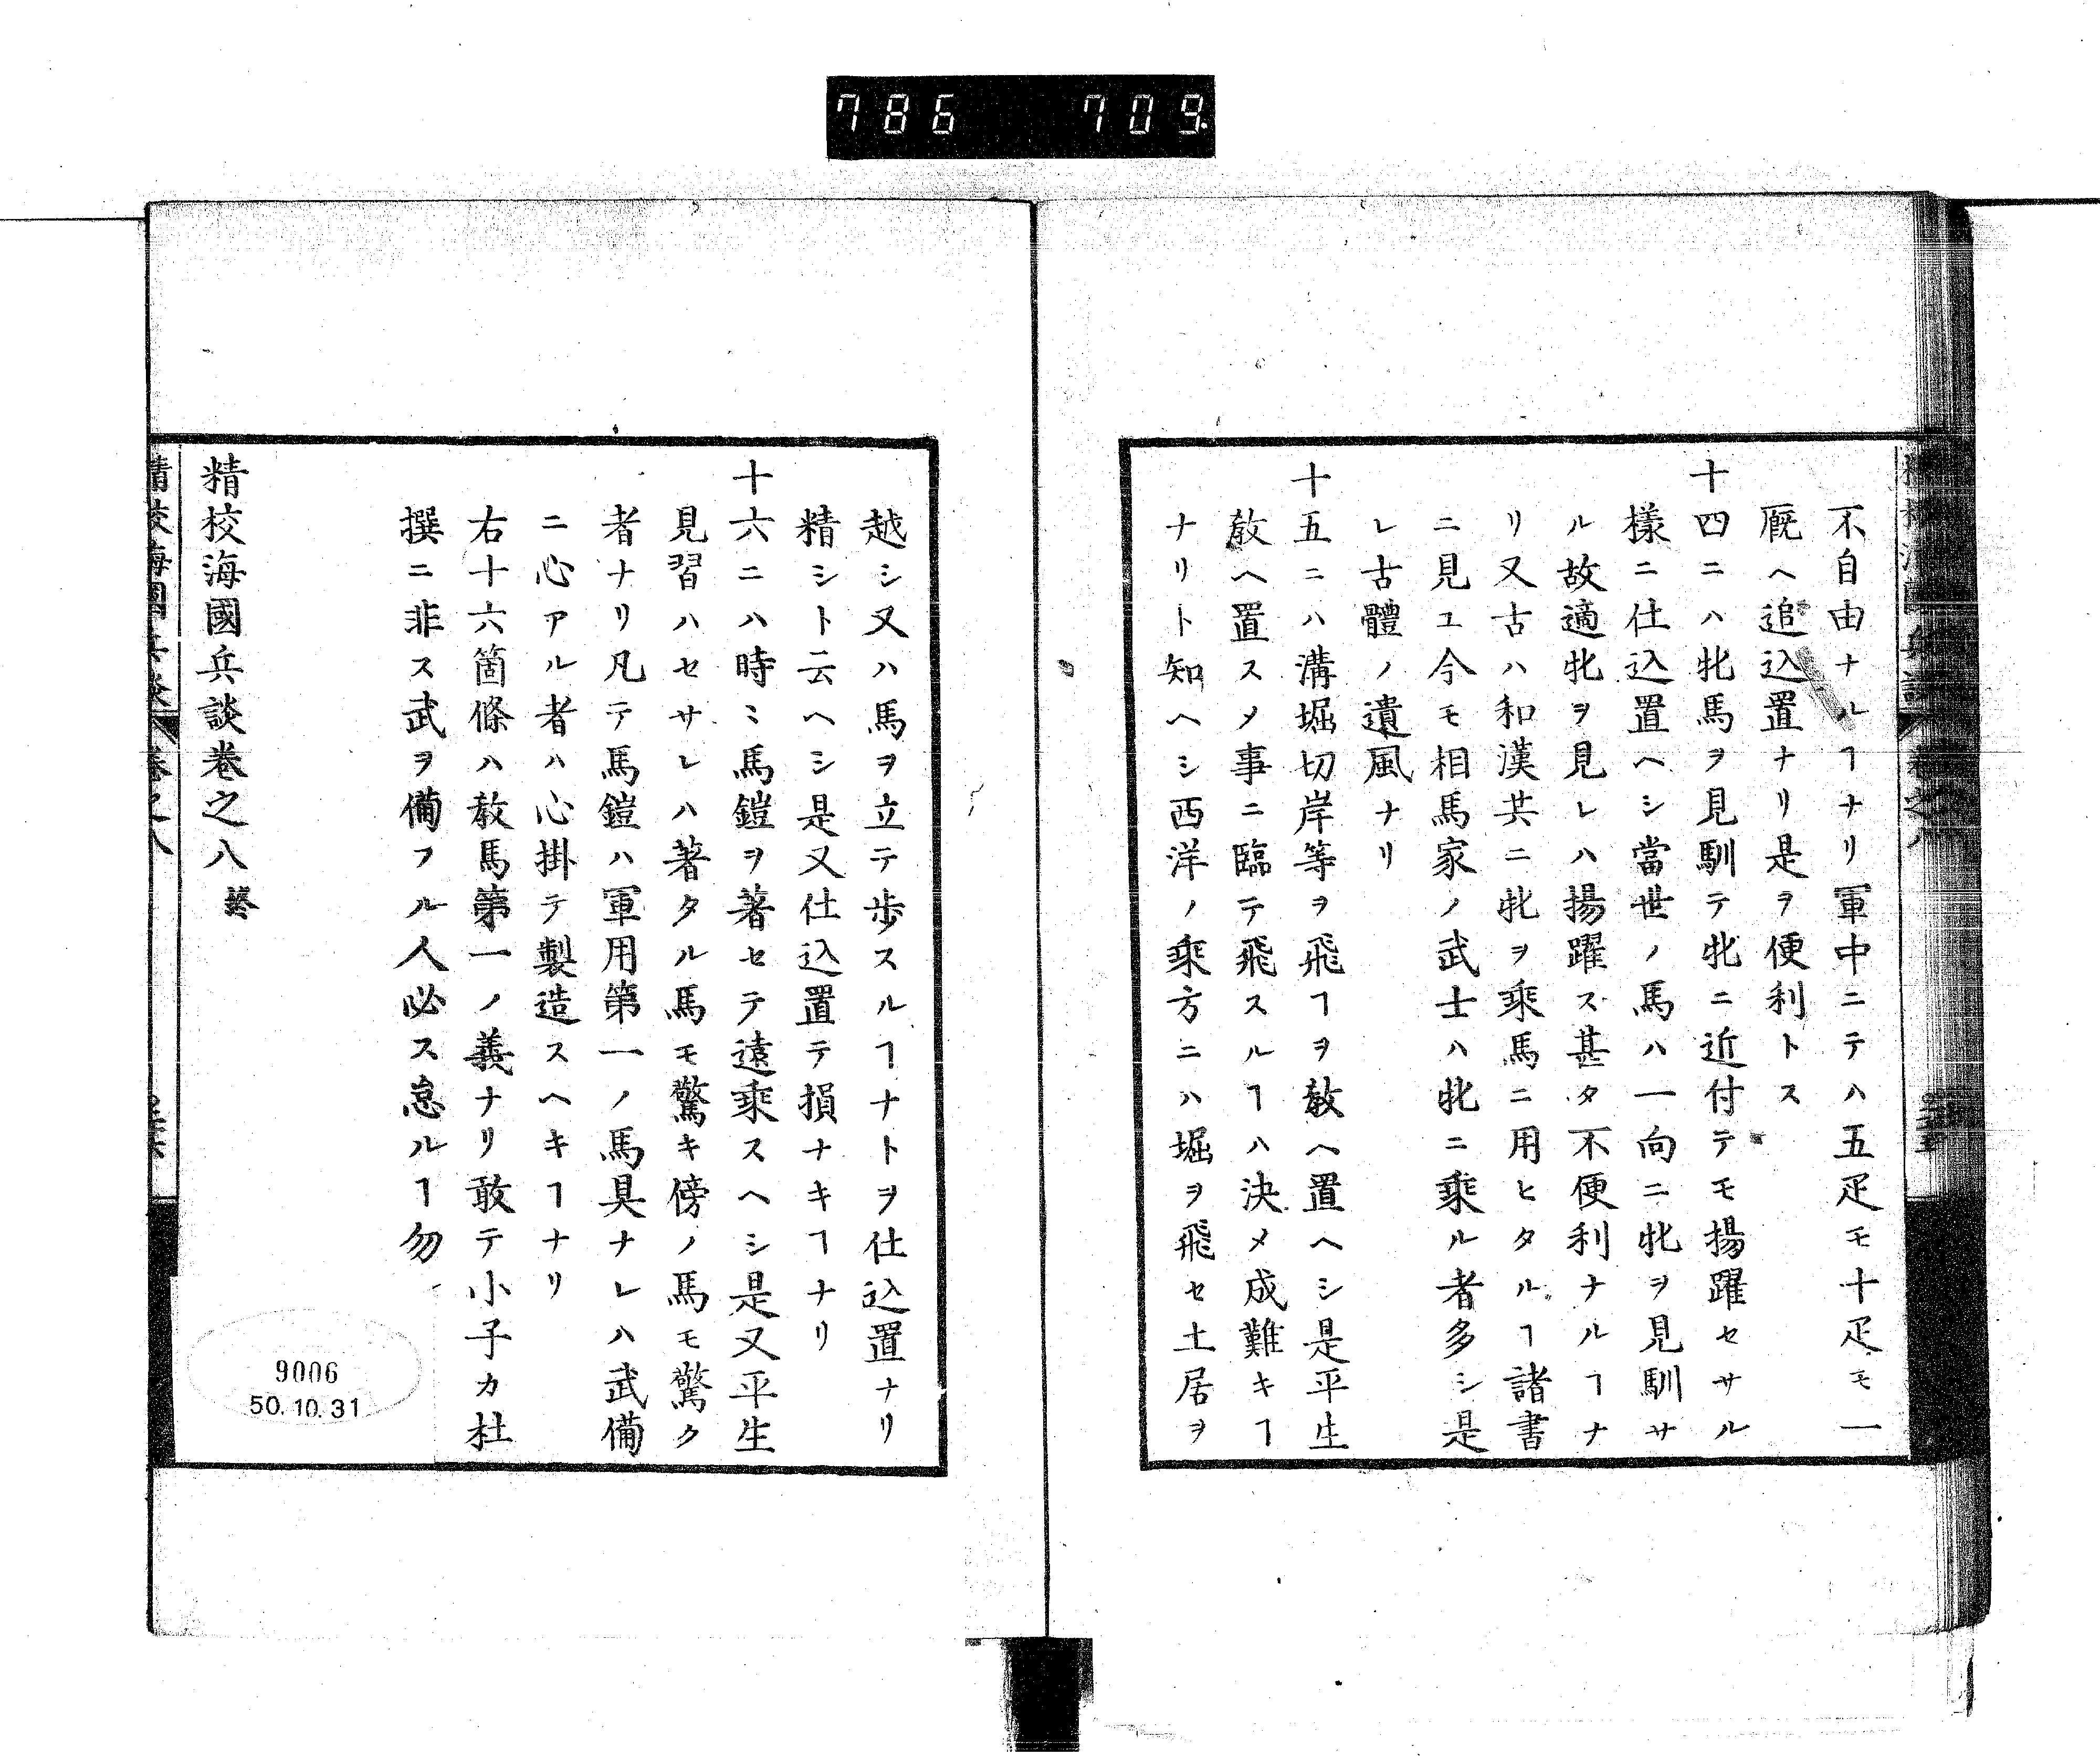 786 709
不自由ナルヿナリ軍中ニテハ五疋モ十疋モ一
厩ヘ追込置ナリ是ヲ便利トス
十四ニハ牝馬ヲ見馴テ牝ニ近付テモ揚躍セサル
樣ニ仕込置ヘシ當世ノ馬ハ一向ニ牝ヲ見馴サ
ル故適牝ヲ見レハ揚躍ス甚タ不便利ナルヿナ
リ又古ハ和漢共ニ牝ヲ乘馬ニ用ヒタルヿ諸書
ニ見ユ今モ相馬家ノ武士ハ牝ニ乘ル者多シ是
レ古體ノ遺風ナリ
十五ニハ溝堀切岸等ヲ飛ヿヲ敎ヘ置ヘシ是平生
敎ヘ置スメ事ニ臨テ飛スルヿハ決メ成難キヿ
ナリト知ヘシ西洋ノ乘方ニハ堀ヲ飛セ土居ヲ
越シ又ハ馬ヲ立テ歩スルヿナトヲ仕込置ナリ
精シト云ヘシ是又仕込置テ損ナキヿナリ
十六ニハ時〻馬鎧ヲ著セテ遠乘スヘシ是又平生
見習ハセサレハ著タル馬モ驚キ傍ノ馬モ驚ク
者ナリ凡テ馬鎧ハ軍用第一ノ馬具ナレハ武備
ニ心アル者ハ心掛テ製造スヘキヿナリ
右十六箇條ハ敎馬第一ノ義ナリ敢テ小子カ杜
撰ニ非ス武ヲ備フル人必ス怠ルヿ勿
精校海國兵談卷之八 終
精校海國兵談 卷之八
9006
50.10.31